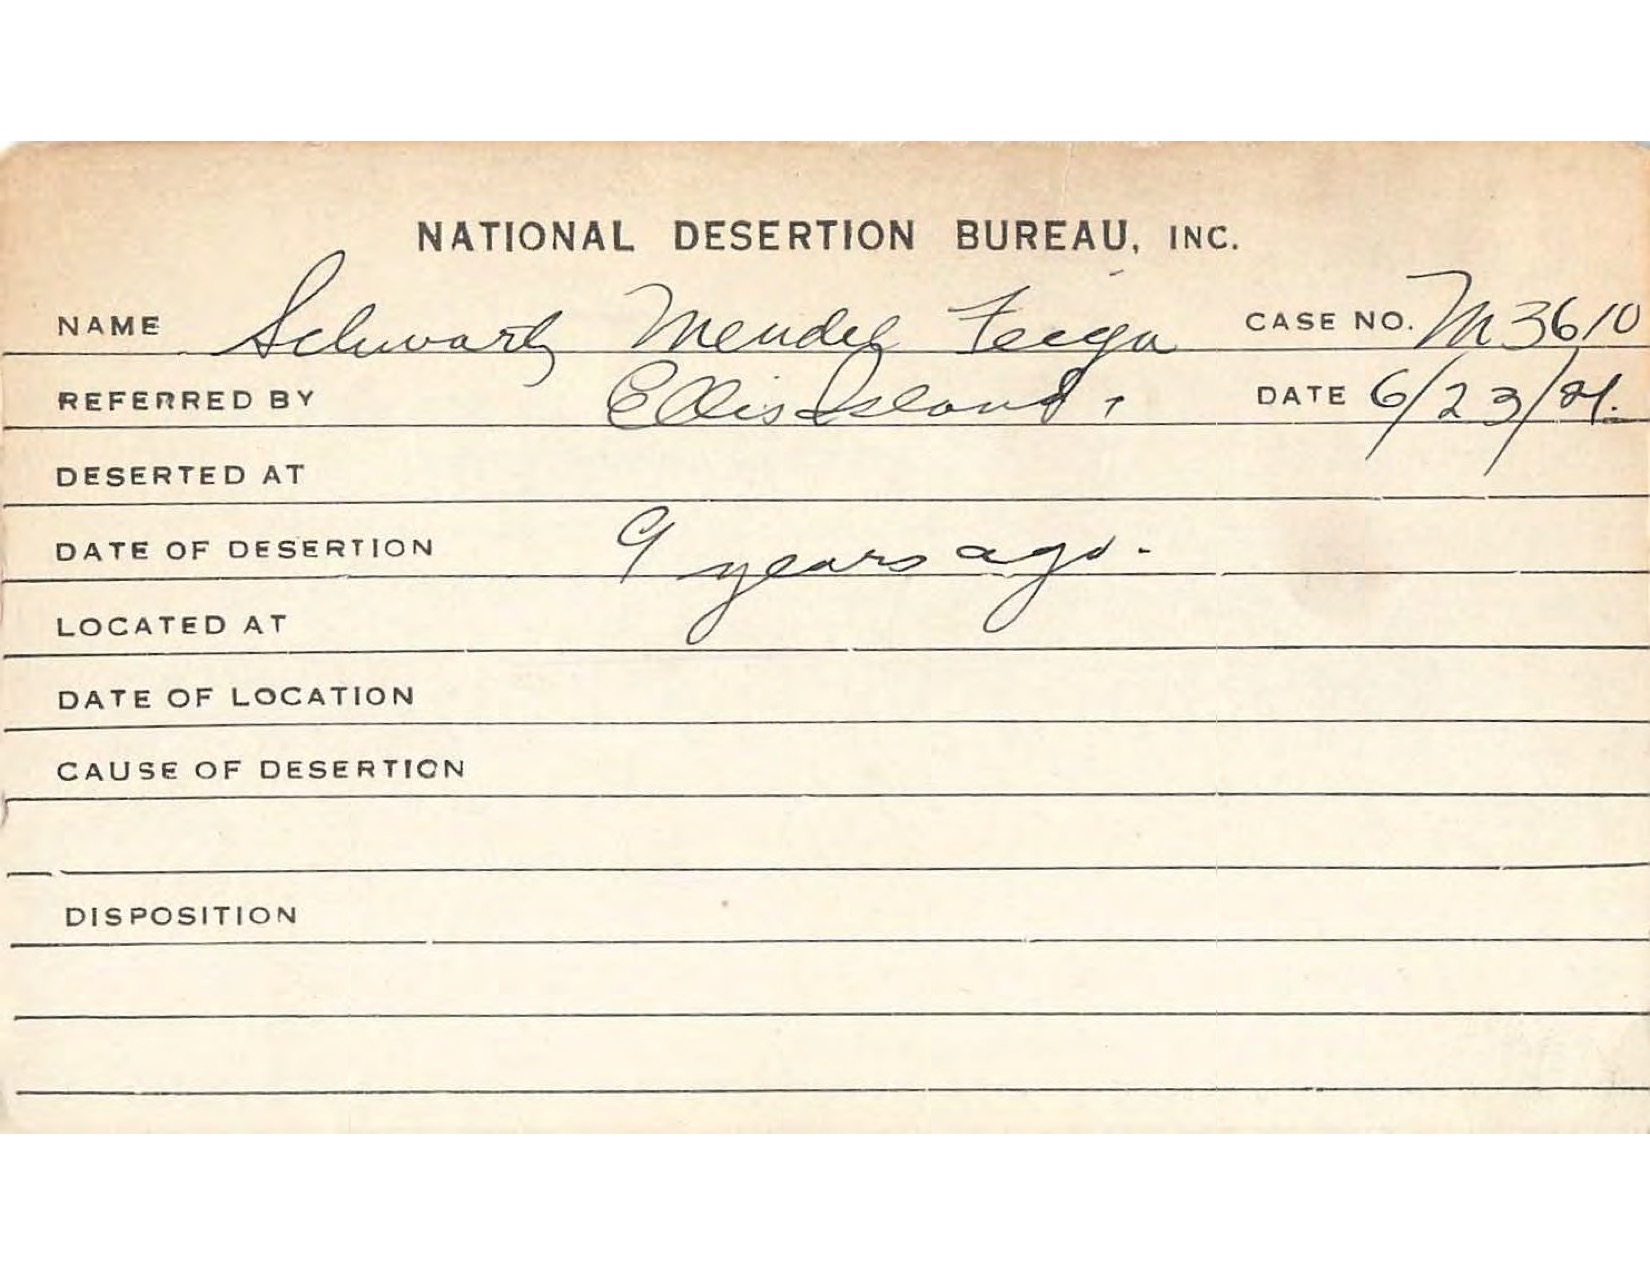 NATIONAL DESERTION BUREAU, INC.
NAME Schwartz Mendel Feiga CASE NO. M3610
REFERRED BY Ellis Island. DATE 6/23/21.
DESERTED AT
DATE OF DESERTION 9 years ago.
LOCATED AT
DATE OF LOCATION
CAUSE OF DESERTION
DISPOSITION